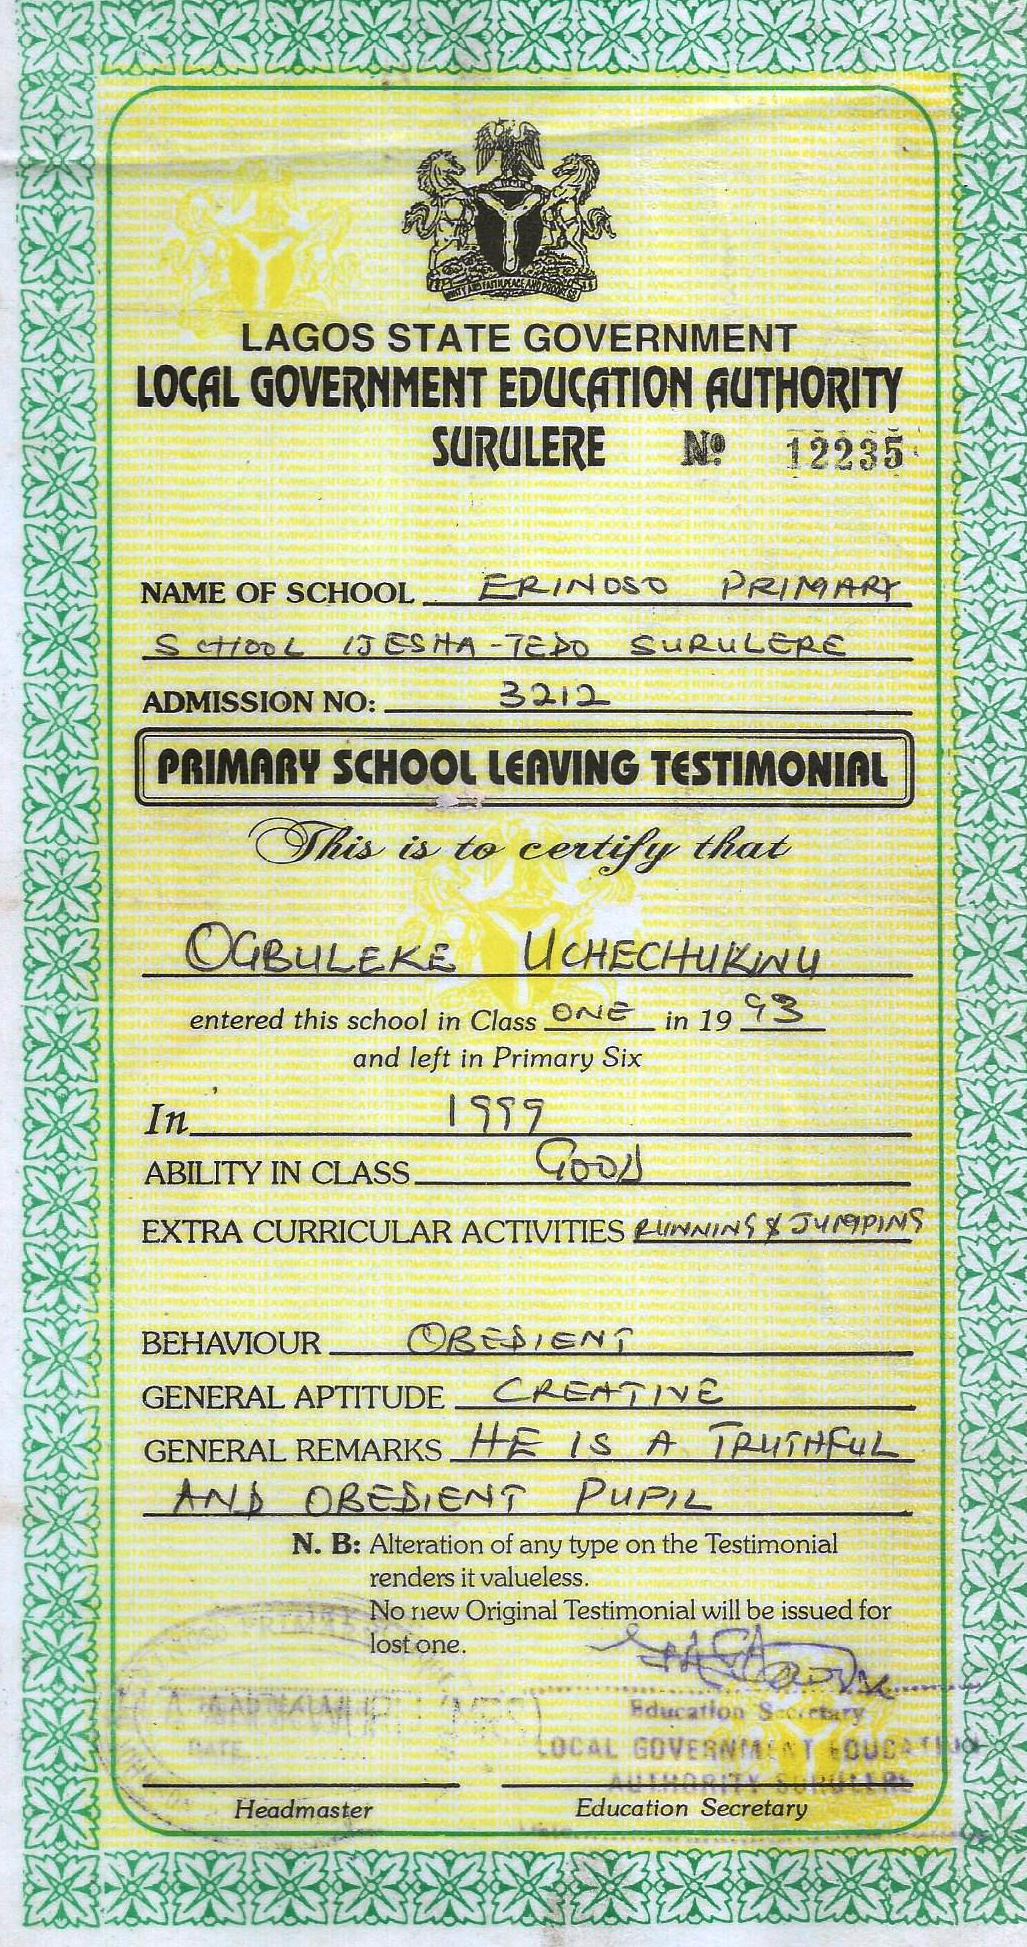 LAGOS STATE GOVERNMENT
LOCAL GOVERNMENT EDUCATION AUTHORITY
SURULERE Nº 12235
NAME OF SCHOOL ERINOSO PRIMARY
SCHOOL IJESHA-TEDO SURULERE
ADMISSION NO: 3212
PRIMARY SCHOOL LEAVING TESTIMONIAL
This is to certify that
OGBULEKE UCHECHUKWU
entered this school in Class ONE in 19 93
and left in Primary Six
In 1999
ABILITY IN CLASS GOOD
EXTRA CURRICULAR ACTIVITIES RUNNING & JUMPING
BEHAVIOUR OBEDIENT
GENERAL APTITUDE CREATIVE
GENERAL REMARKS HE IS A TRUTHFUL
AND OBEDIENT PUPIL
N. B: Alteration of any type on the Testimonial
renders it valueless.
No new Original Testimonial will be issued for
lost one.
Education Secretary
LOCAL GOVERNMENT EDUCATION
DATE
AUTHORITY SURULERE
Headmaster Education Secretary